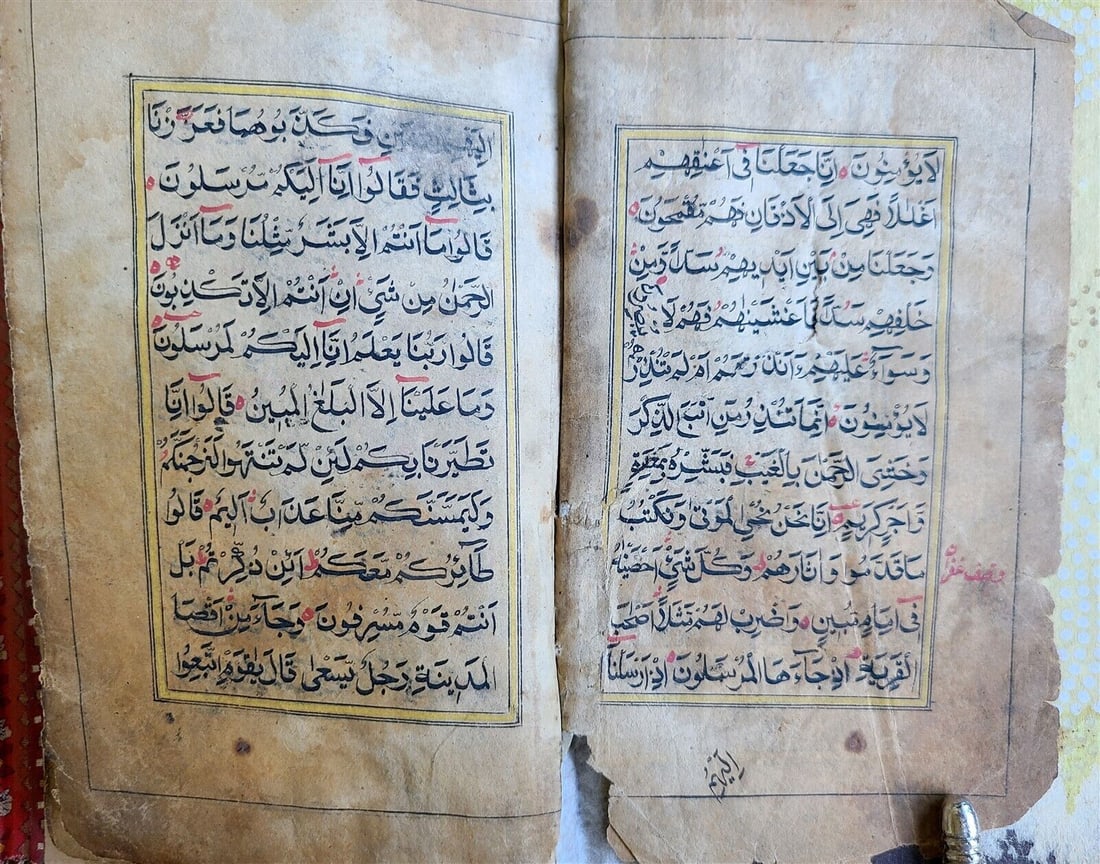 لَا يُؤْمِنُونَ ۝ اِنَّا جَعَلْنَا فِىٓ اَعْنَاقِهِمْ
اَغْلٰلًا فَهِىَ اِلَى الْاَذْقَانِ فَهُمْ مُّقْمَحُونَ ۝
وَجَعَلْنَا مِنْ بَيْنِ اَيْدِيهِمْ سَدًّا وَّمِنْ
خَلْفِهِمْ سَدًّا فَاَغْشَيْنٰهُمْ فَهُمْ لَا يُبْصِرُونَ
وَسَوَآءٌ عَلَيْهِمْ ءَاَنْذَرْتَهُمْ اَمْ لَمْ تُنْذِرْهُمْ
لَا يُؤْمِنُونَ ۝ اِنَّمَا تُنْذِرُ مَنِ اتَّبَعَ الذِّكْرَ
وَخَشِىَ الرَّحْمٰنَ بِالْغَيْبِ فَبَشِّرْهُ بِمَغْفِرَةٍ
وَّاَجْرٍ كَرِيمٍ ۝ اِنَّا نَحْنُ نُحْىِ الْمَوْتٰى وَنَكْتُبُ
مَا قَدَّمُوا وَاٰثَارَهُمْ وَكُلَّ شَىْءٍ اَحْصَيْنٰهُ
وقف غفران
فِىٓ اِمَامٍ مُّبِينٍ ۝ وَاضْرِبْ لَهُمْ مَّثَلًا اَصْحٰبَ
الْقَرْيَةِ اِذْ جَآءَهَا الْمُرْسَلُونَ ۝ اِذْ اَرْسَلْنَآ
اِلَيْهِمُ
اثْنَيْنِ فَكَذَّبُوهُمَا فَعَزَّزْنَا
بِثَالِثٍ فَقَالُوٓا اِنَّآ اِلَيْكُمْ مُّرْسَلُونَ ۝
قَالُوا مَآ اَنْتُمْ اِلَّا بَشَرٌ مِّثْلُنَا وَمَآ اَنْزَلَ
الرَّحْمٰنُ مِنْ شَىْءٍ اِنْ اَنْتُمْ اِلَّا تَكْذِبُونَ ۝
قَالُوا رَبُّنَا يَعْلَمُ اِنَّآ اِلَيْكُمْ لَمُرْسَلُونَ ۝
وَمَا عَلَيْنَآ اِلَّا الْبَلٰغُ الْمُبِينُ ۝ قَالُوٓا اِنَّا
تَطَيَّرْنَا بِكُمْ لَئِنْ لَّمْ تَنْتَهُوا لَنَرْجُمَنَّكُمْ
وَلَيَمَسَّنَّكُمْ مِّنَّا عَذَابٌ اَلِيمٌ ۝ قَالُوا
طَآئِرُكُمْ مَّعَكُمْ اَئِنْ ذُكِّرْتُمْ بَلْ
اَنْتُمْ قَوْمٌ مُّسْرِفُونَ ۝ وَجَآءَ مِنْ اَقْصَا
الْمَدِينَةِ رَجُلٌ يَّسْعٰى قَالَ يٰقَوْمِ اتَّبِعُوا